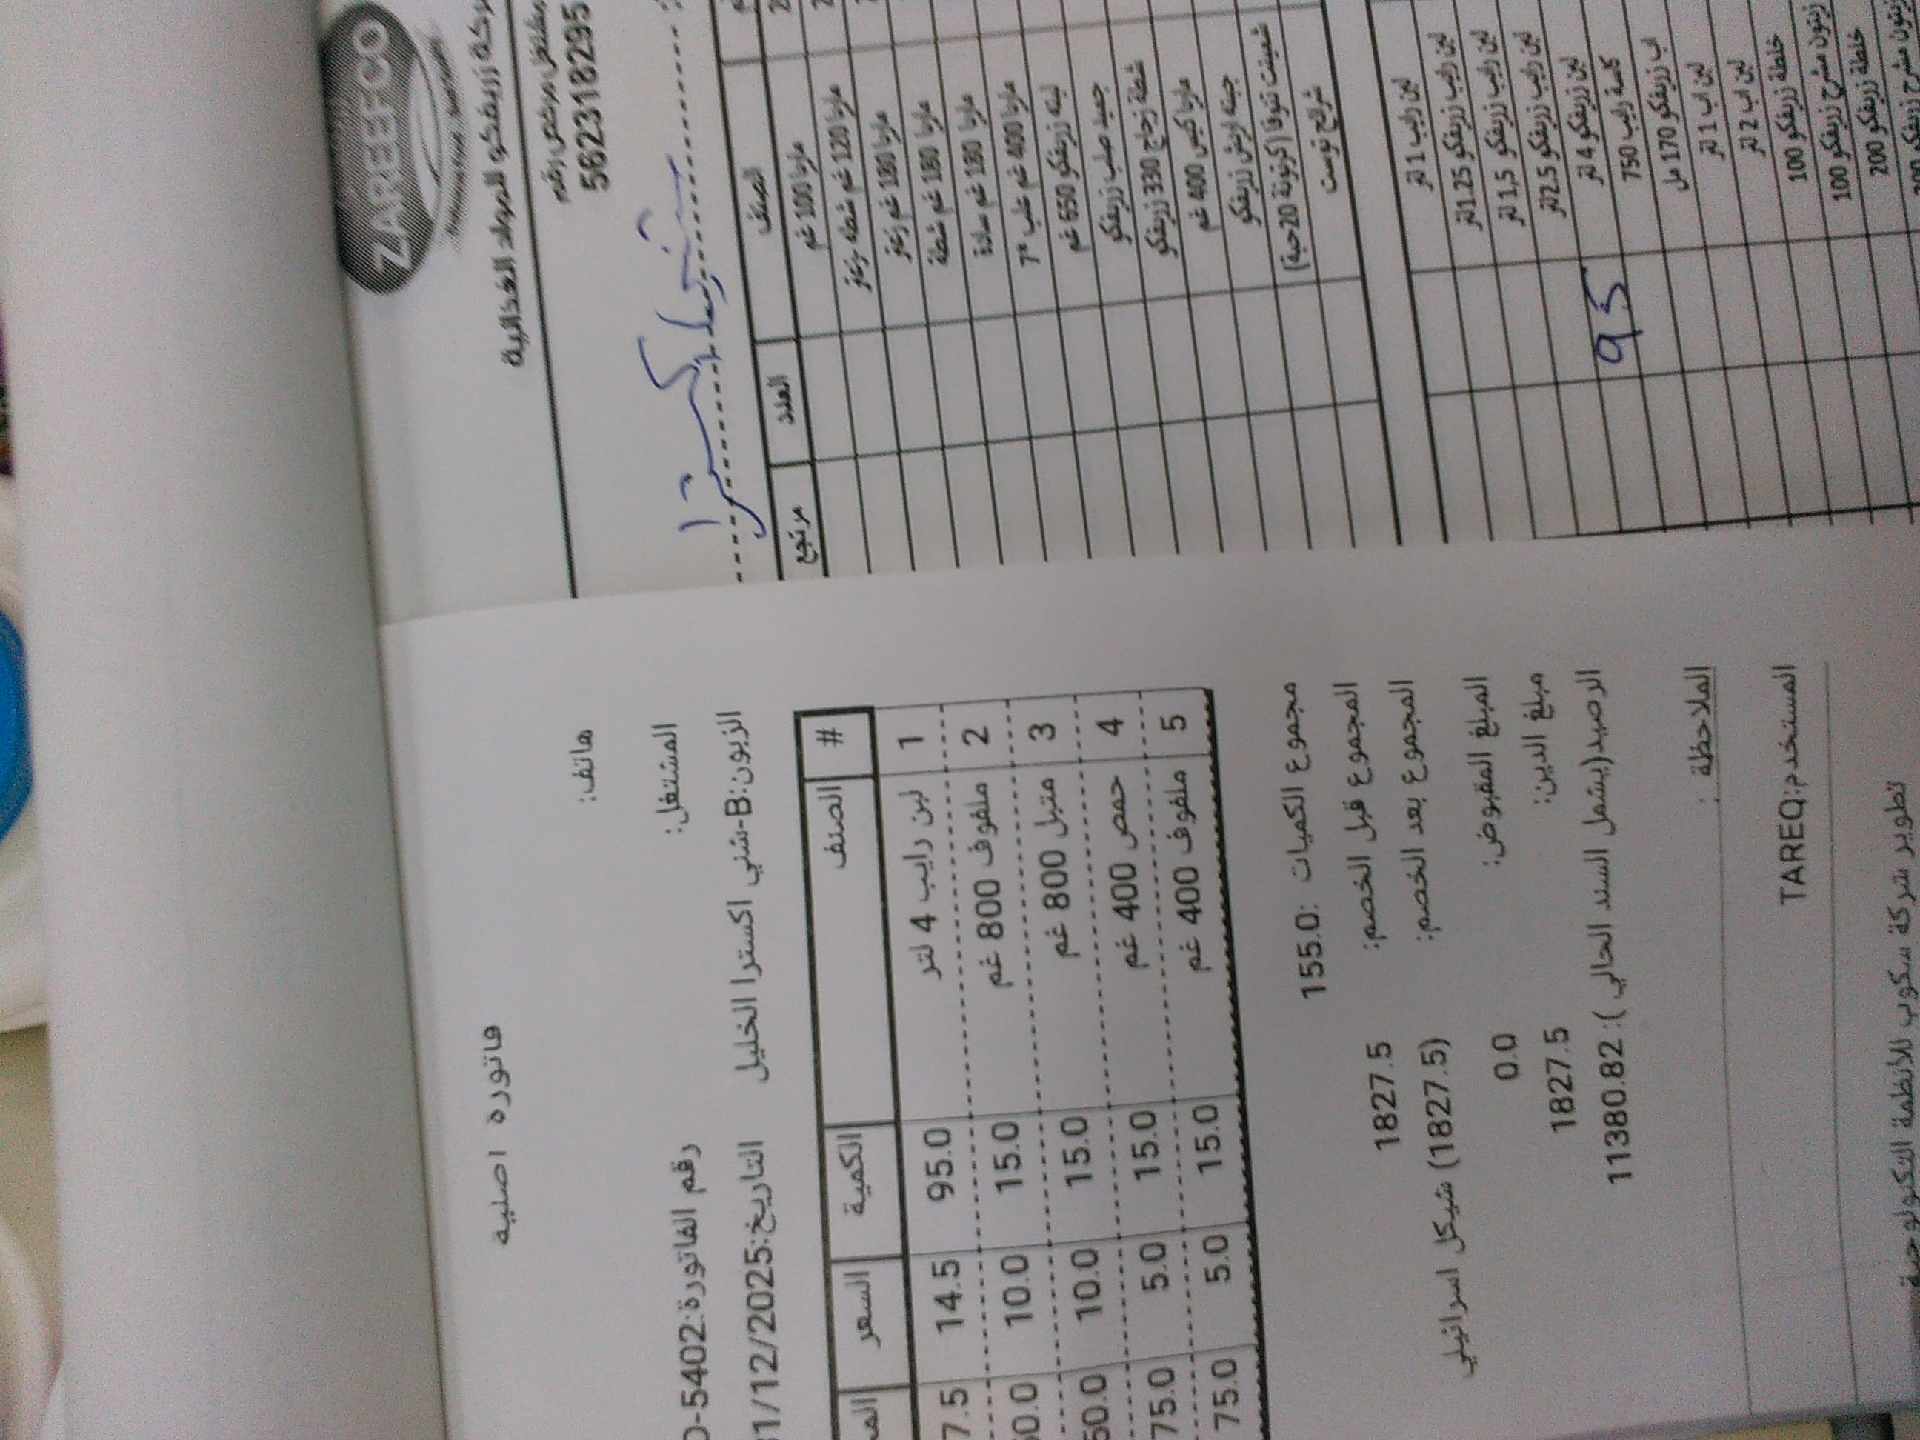 فاتورة اصلية
هاتف:
المشتغل:
رقم الفاتورة:5402-
الزبون:B-شني اكسترا الخليل
التاريخ:31/12/2025
# الصنف الكمية السعر
1 لبن رايب 4 لتر 95.0 14.5 7.5
2 ملفوف 800 غم 15.0 10.0 50.0
3 متبل 800 غم 15.0 10.0 50.0
4 حمص 400 غم 15.0 5.0 75.0
5 ملفوف 400 غم 15.0 5.0 75.0
مجموع الكميات :155.0
المجموع قبل الخصم: 1827.5
المجموع بعد الخصم: (1827.5) شيكل اسرائيلي
المبلغ المقبوض: 0.0
مبلغ الدين: 1827.5
الرصيد(يشمل السند الحالي ): 11380.82
الملاحظة :
المستخدم:TAREQ
تطوير شركة سكوب للأنظمة التكنولوجية
ZAREEFCO
شركة زريفكو للمواد الغذائية
مشتغل مرخص رقم
562318295
الصنف العدد مرتجع
100 غم
120 غم شطة وزعتر
180 غم زعتر
180 غم شطة
180 غم سادة
400 غم علب *7
لبنه زريفكو 650 غم
جميد صلب زريفكو
شطة زجاج 330 زريفكو
كيس 400 غم
جبنه زريفكو
(كرتونة 20حبة)
شرائح توست
لبن رايب 1 لتر
لبن رايب زريفكو 1.25 لتر
لبن رايب زريفكو 1,5 لتر
لبن رايب زريفكو 2.5 لتر
لبن زريفكو 4 لتر 95
كاسة رايب 750
اب زريفكو 170 مل
لبن اب 1 لتر
لبن اب 2 لتر
خلطة زريفكو 100
زيتون مشرح زريفكو 100
خلطة زريفكو 200
زيتون مشرح زريفكو 200